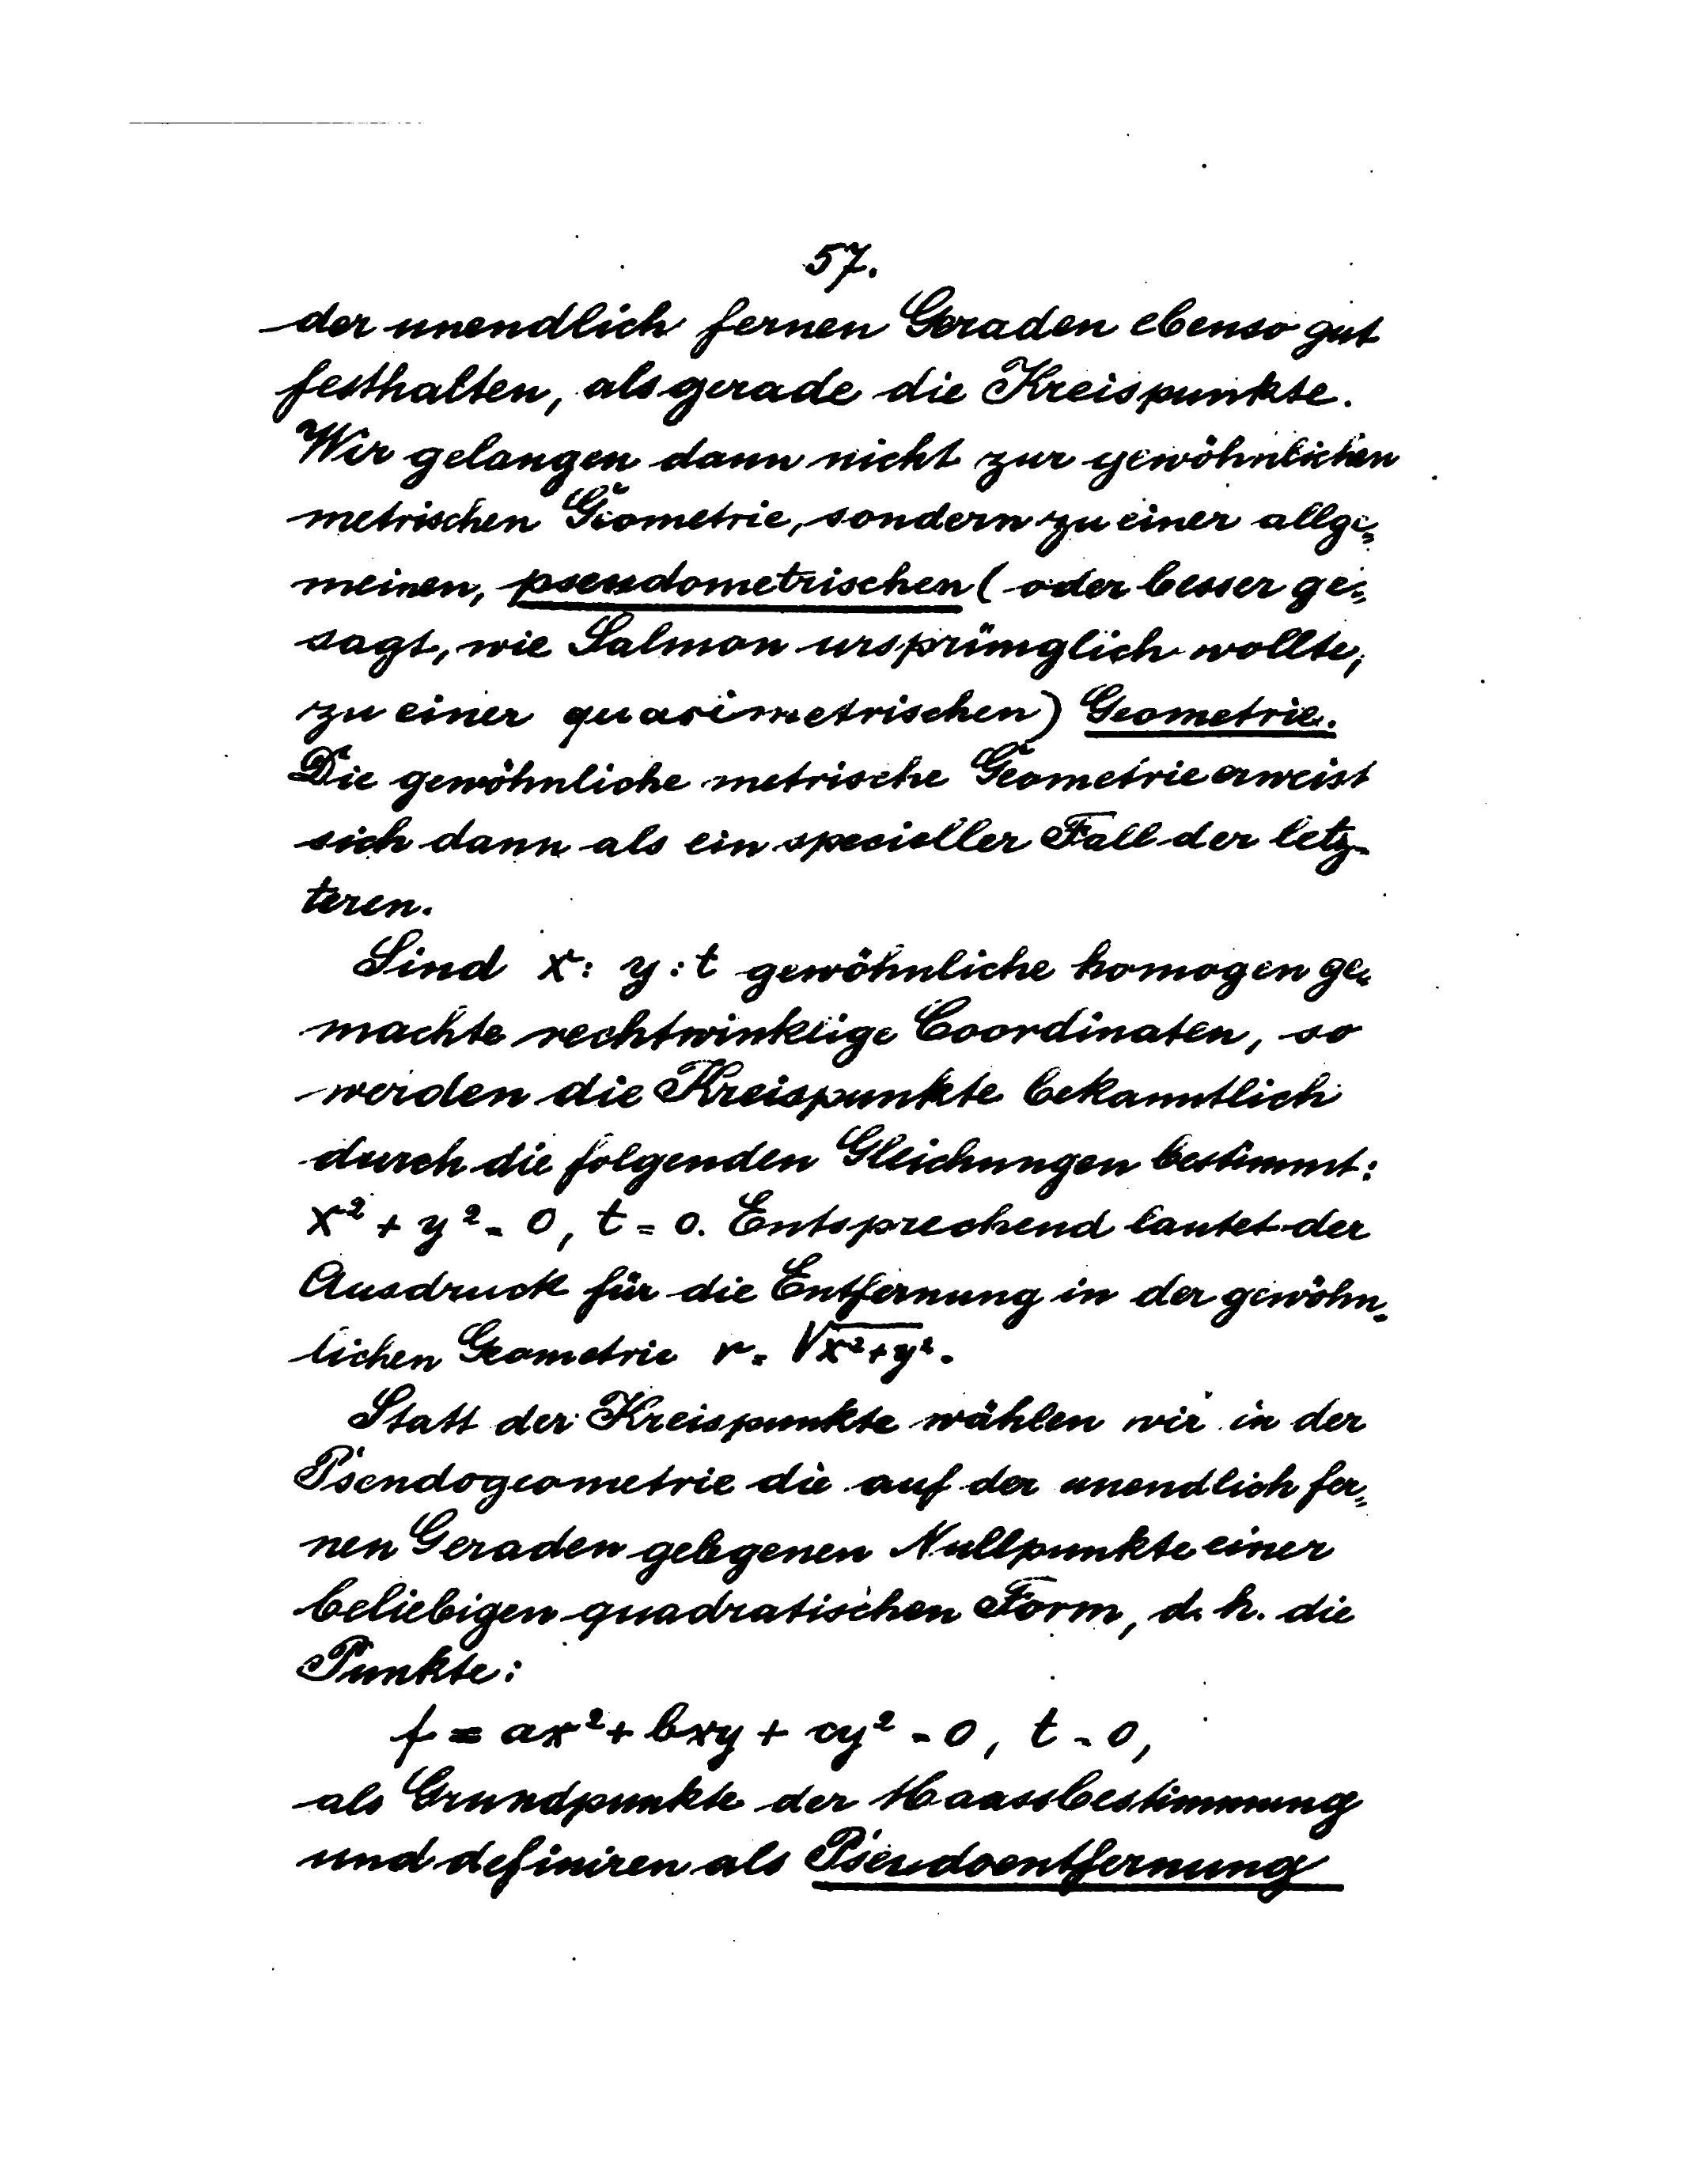 57.
der unendlich fernen Geraden ebenso gut
festhalten, als gerade die Kreispunkte.
Wir gelangen dann nicht zur gewöhnlichen
metrischen Geometrie, sondern zu einer allge=
meinen, pseudometrischen (oder besser ge=
sagt, wie Salmon ursprünglich wollte,
zu einer quasimetrischen) Geometrie.
Die gewöhnliche metrische Geometrie erweist
sich dann als ein specieller Fall der letz-
teren.
Sind x : y : t gewöhnliche homogen ge=
machte rechtwinklige Coordinaten, so
werden die Kreispunkte bekanntlich
durch die folgenden Gleichungen bestimmt:
x² + y² = 0, t = 0. Entsprechend lautet der
Ausdruck für die Entfernung in der gewöhn=
lichen Geometrie r = √x²+y².
Statt der Kreispunkte wählen wir in der
Pseudogeometrie die auf der unendlich fer=
nen Geraden gelegenen Nullpunkte einer
beliebigen quadratischen Form, d. h. die
Punkte:
f = ax² + bxy + cy² = 0, t = 0,
als Grundpunkte der Maassbestimmung
und definiren als Pseudoentfernung